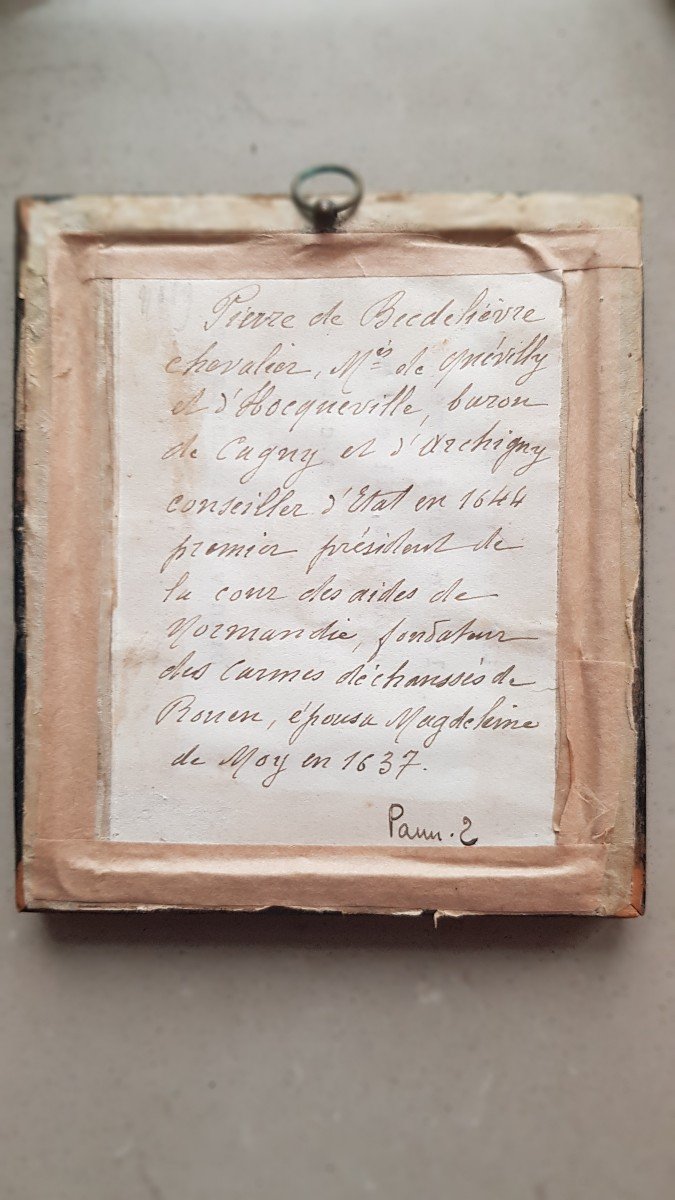 Pierre de Becdelièvre
chevalier, Mis de Quévilly
et d'Hocqueville, baron
de Cagny et d'Archigny
conseiller d'Etat en 1644
premier président de
la cour des aides de
Normandie, fondateur
des Carmes déchaussés de
Rouen, épousa Magdeleine
de Moy en 1637.
Pann. 2